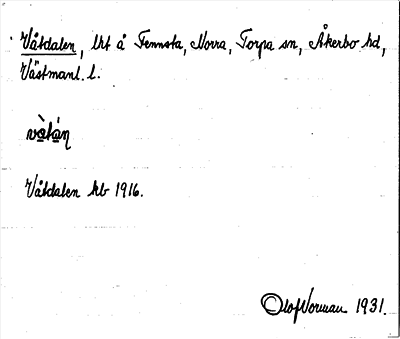 Våtdalen, lht å Fennsta, Norra, Torpa sn, Åkerbo hd,
Västmanl. l.
vàtán
Våtdalen kb 1916.
Olof Norman 1931.